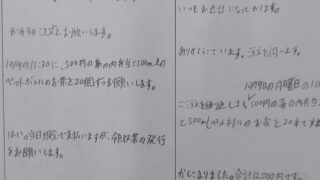 お弁当の注文をお願いします。
10/9の11:30に、500円の幕の内弁当と500mLの
ペットボトルのお茶を20個ずつお願いします。
はい。当日現金で支払いますが、領収書の発行
をお願いします。
いつもお世話になっております。
ありがとうございます。注文を伺います。
10/9の月曜日の11
ご注文を確認します。500円の幕の内弁当
と500mLペットボトルのお茶を20本ずつ
かしこまりました。合計12,000円です。